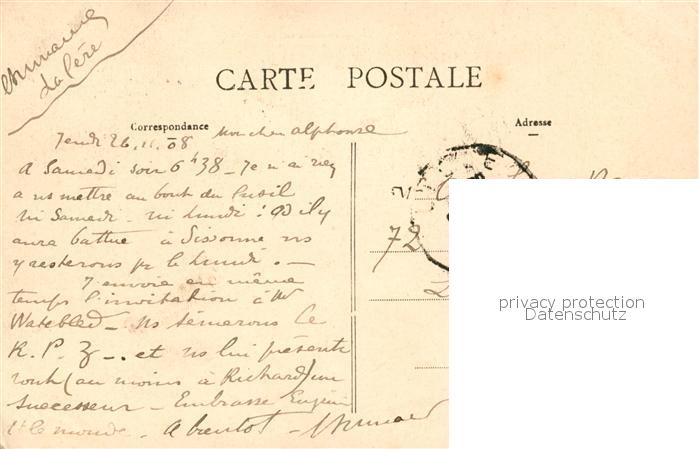 la Père
CARTE POSTALE
Correspondance
Adresse
Jeudi 26.11.08 Mon cher Alphonse
A Samedi soir 6h38 - Je n'ai rien
a ns mettre au bout du fusil
ni Samedi - ni lundi : qd il y
aura battue à Sissonne ns
y resterons pr le lundi. -
J'envoie en même
temps l'invitation à Mr
Watebled - Ns sèmerons le
R. P. Z -. et ns lui présente
ront (au moins à Richard) un
successeur - Embrasse Eugénie
le monde. A bientôt -
72
privacy protection
Datenschutz